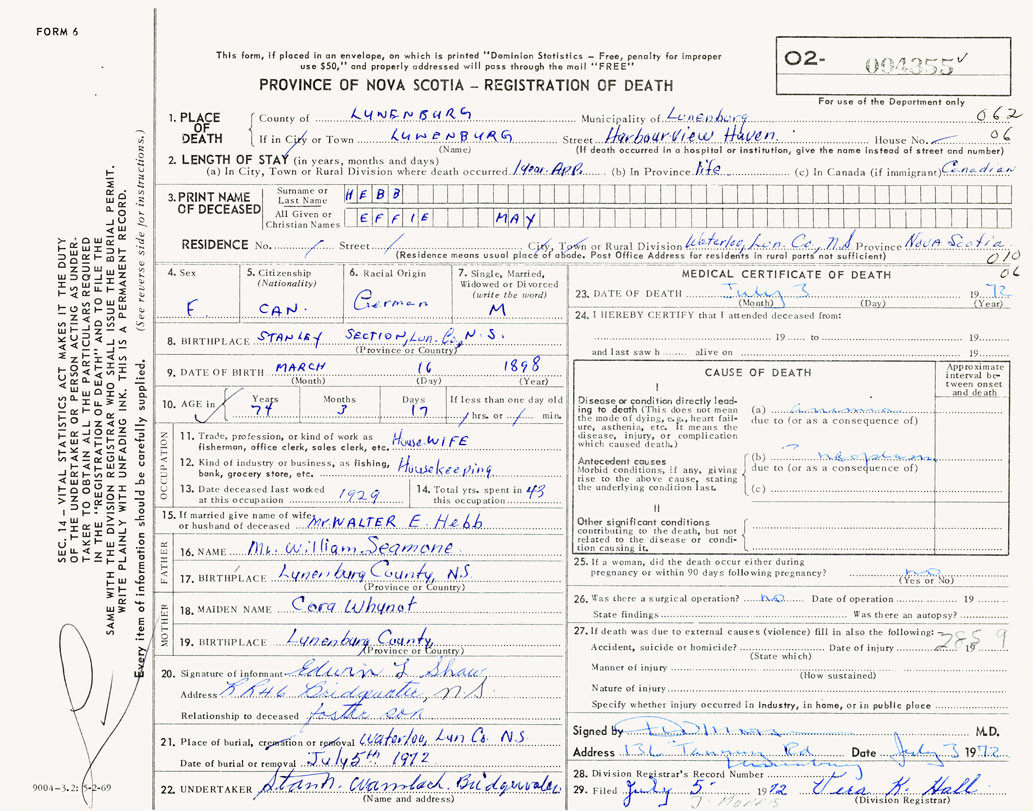 FORM 6
This form, if placed in an envelope, on which is printed "Dominion Statistics – Free, penalty for improper
use $50," and properly addressed will pass through the mail "FREE"
PROVINCE OF NOVA SCOTIA – REGISTRATION OF DEATH
O2- 004355
For use of the Department only
1. PLACE OF DEATH
County of LUNENBURG Municipality of Lunenburg 062
If in City or Town LUNENBURG Street Harbourview Haven House No. 06
(Name) (If death occurred in a hospital or institution, give the name instead of street and number)
2. LENGTH OF STAY (in years, months and days)
(a) In City, Town or Rural Division where death occurred 1 year. APP. (b) In Province life (c) In Canada (if immigrant) Canadian
3. PRINT NAME OF DECEASED
Surname or Last Name HEBB
All Given or Christian Names EFFIE MAY
RESIDENCE No. Street City, Town or Rural Division Waterloo, Lun. Co., N.S Province NOVA Scotia
(Residence means usual place of abode. Post Office Address for residents in rural parts not sufficient) 010
06
4. Sex F.
5. Citizenship (Nationality) CAN.
6. Racial Origin German
7. Single, Married, Widowed or Divorced (write the word) M
8. BIRTHPLACE STANLEY SECTION, Lun. Co., N.S.
(Province or Country)
9. DATE OF BIRTH MARCH 16 1898
(Month) (Day) (Year)
10. AGE in Years 74 Months 3 Days 17 If less than one day old hrs. or min.
OCCUPATION
11. Trade, profession, or kind of work as
fishermen, office clerk, sales clerk, etc. HouseWIFE
12. Kind of industry or business, as fishing,
bank, grocery store, etc. Housekeeping
13. Date deceased last worked
at this occupation 1929
14. Total yrs. spent in
this occupation 43
15. If married give name of wife
or husband of deceased Mr. WALTER E. Hebb
FATHER
16. NAME Mr. William Seamone
17. BIRTHPLACE Lunenburg County, N.S.
(Province or Country)
MOTHER
18. MAIDEN NAME Cora Whynot
19. BIRTHPLACE Lunenburg County
(Province or Country)
20. Signature of informant Edwin L Shaw
Address RR#6 Bridgwater, N.S.
Relationship to deceased foster son
21. Place of burial, cremation or removal Waterloo, Lun Co. N.S
Date of burial or removal July 5th 1972
22. UNDERTAKER
(Name and address)
MEDICAL CERTIFICATE OF DEATH
23. DATE OF DEATH July 3 1972
(Month) (Day) (Year)
24. I HEREBY CERTIFY that I attended deceased from:
19 to 19
and last saw h alive on 19
CAUSE OF DEATH
Approximate interval between onset and death
I
Disease or condition directly leading to death (This does not mean the mode of dying, e.g., heart failure, asthenia, etc. It means the disease, injury, or complication which caused death.)
(a) anemia
due to (or as a consequence of)
Antecedent causes
Morbid conditions, if any, giving rise to the above cause, stating the underlying condition last.
(b) ? neoplasm
due to (or as a consequence of)
(c)
II
Other significant conditions contributing to the death, but not related to the disease or condition causing it.
25. If a woman, did the death occur either during
pregnancy or within 90 days following pregnancy? no
(Yes or No)
26. Was there a surgical operation? no Date of operation 19
State findings Was there an autopsy?
27. If death was due to external causes (violence) fill in also the following: 285 9
Accident, suicide or homicide? Date of injury 19
(State which) (How sustained)
Manner of injury
Nature of injury
Specify whether injury occurred in industry, in home, or in public place
Signed by M.D.
Address Rd Date July 3 1972
Lunenburg
28. Division Registrar's Record Number
29. Filed July 5 1972 Vera K. Hall
(Division Registrar)
SEC. 14 – VITAL STATISTICS ACT MAKES IT THE DUTY
OF THE UNDERTAKER OR PERSON ACTING AS UNDER-
TAKER TO OBTAIN ALL THE PARTICULARS REQUIRED
IN THE "REGISTRATION OF DEATH" AND TO FILE THE
SAME WITH THE DIVISION REGISTRAR WHO SHALL ISSUE THE BURIAL PERMIT.
WRITE PLAINLY WITH UNFADING INK. THIS IS A PERMANENT RECORD.
Every item of information should be carefully supplied. (See reverse side for instructions.)
9004-3.2: 5-2-69